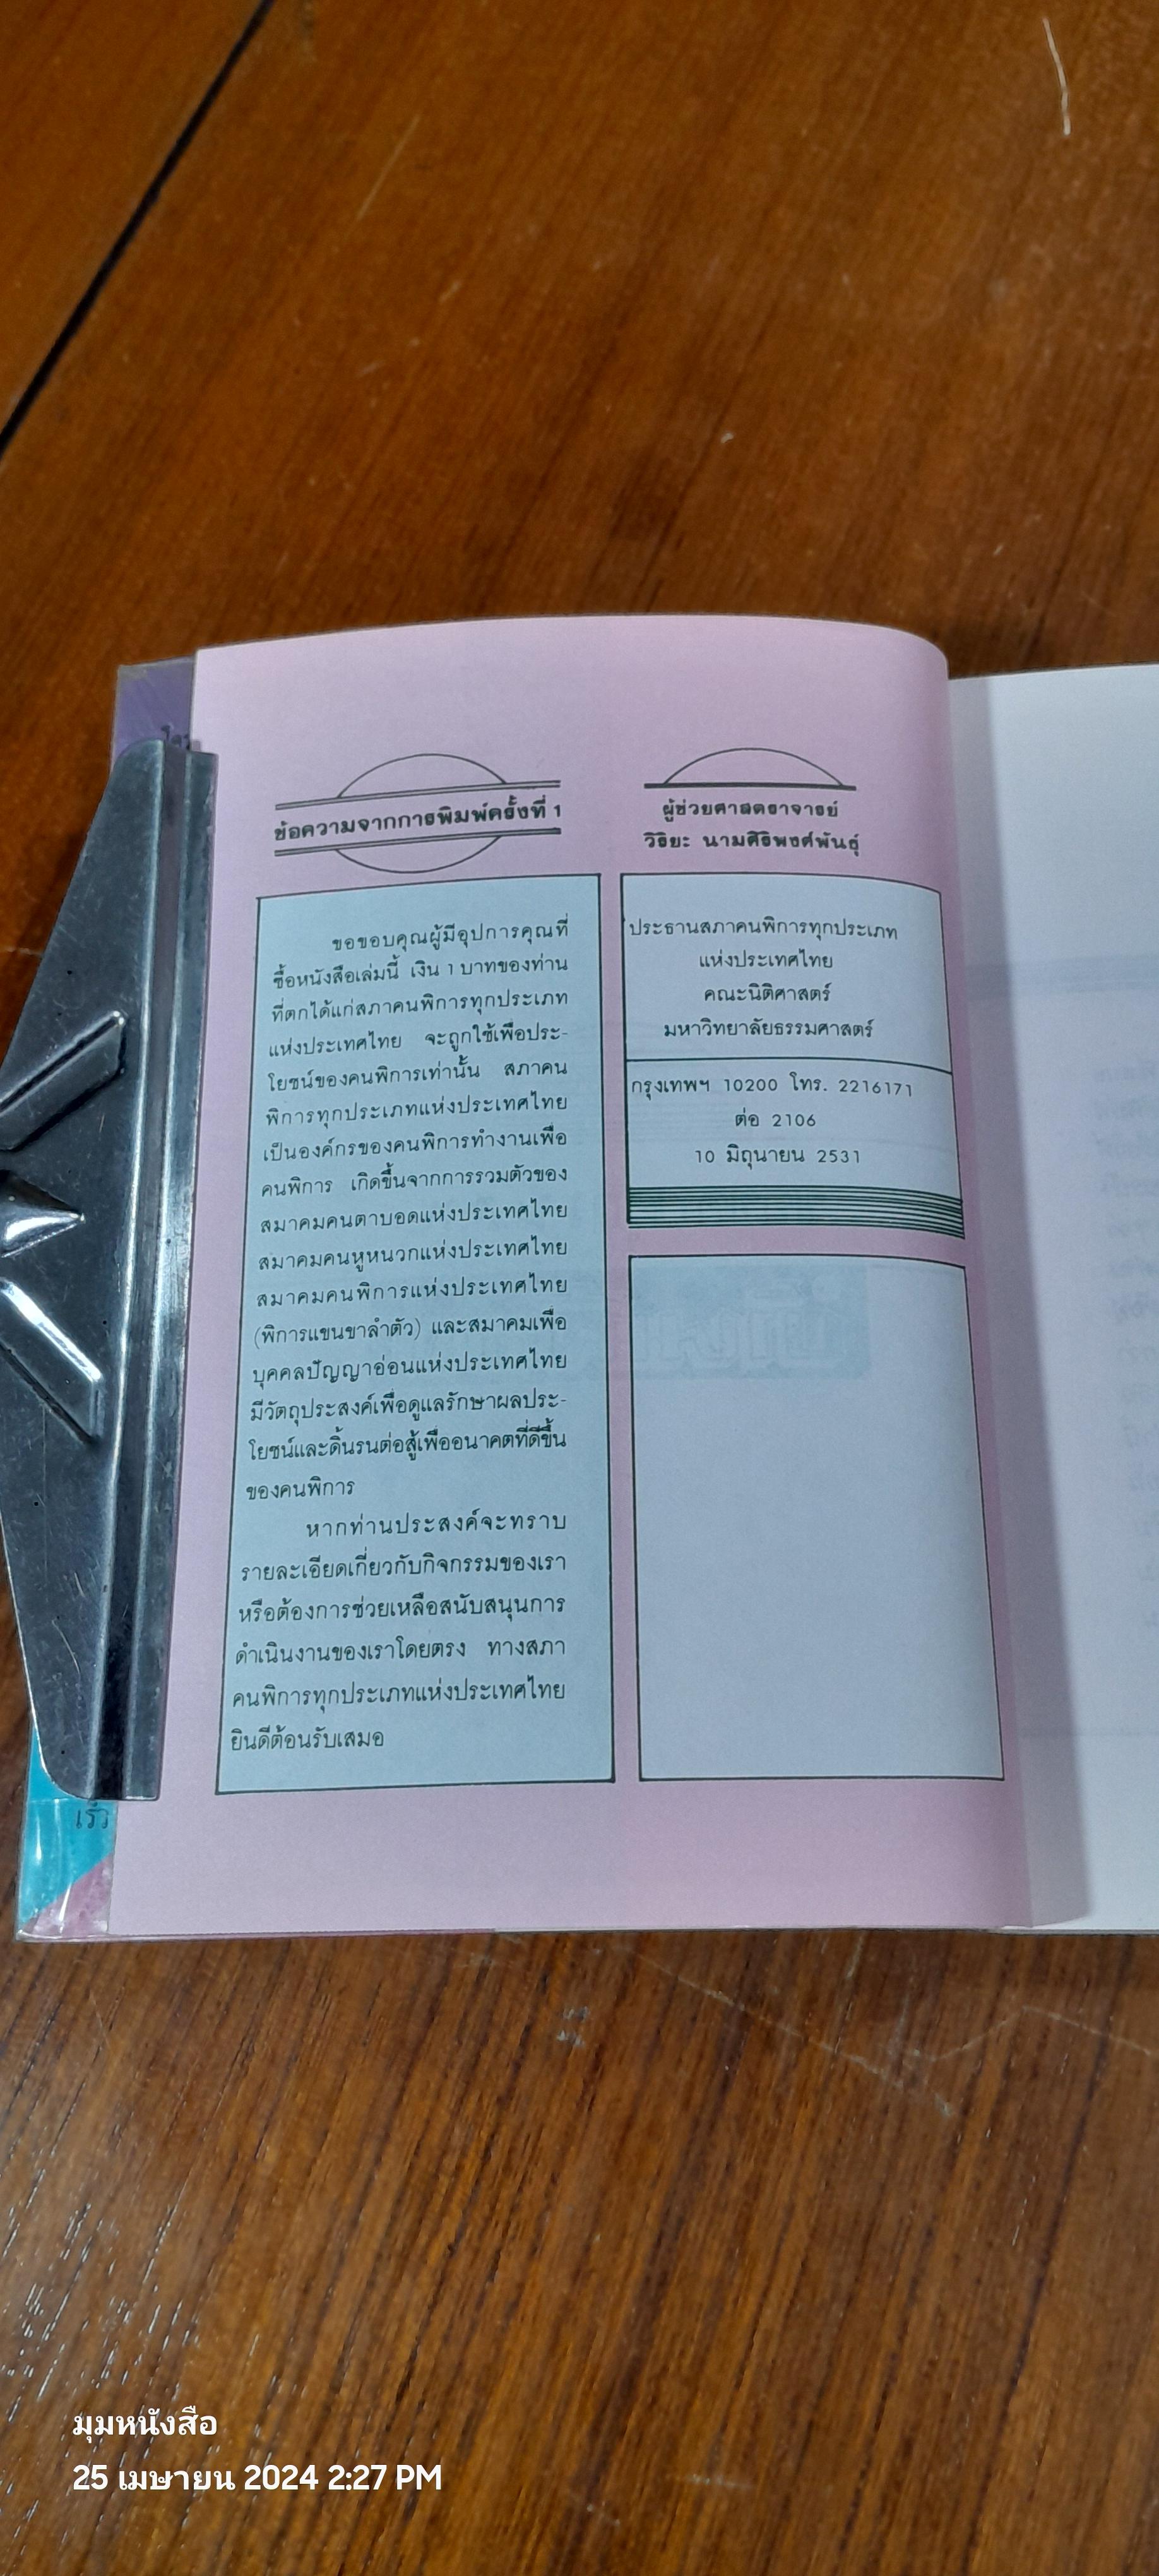 ข้อความจากการพิมพ์ครั้งที่ 1
ขอขอบคุณผู้มีอุปการคุณที่
ซื้อหนังสือเล่มนี้ เงิน 1 บาทของท่าน
ที่ตกได้แก่สภาคนพิการทุกประเภท
แห่งประเทศไทย จะถูกใช้เพื่อประ-
โยชน์ของคนพิการเท่านั้น สภาคน
พิการทุกประเภทแห่งประเทศไทย
เป็นองค์กรของคนพิการทำงานเพื่อ
คนพิการ เกิดขึ้นจากการรวมตัวของ
สมาคมคนตาบอดแห่งประเทศไทย
สมาคมคนหูหนวกแห่งประเทศไทย
สมาคมคนพิการแห่งประเทศไทย
(พิการแขนขาลำตัว) และสมาคมเพื่อ
บุคคลปัญญาอ่อนแห่งประเทศไทย
มีวัตถุประสงค์เพื่อดูแลรักษาผลประ-
โยชน์และดิ้นรนต่อสู้เพื่ออนาคตที่ดีขึ้น
ของคนพิการ
หากท่านประสงค์จะทราบ
รายละเอียดเกี่ยวกับกิจกรรมของเรา
หรือต้องการช่วยเหลือสนับสนุนการ
ดำเนินงานของเราโดยตรง ทางสภา
คนพิการทุกประเภทแห่งประเทศไทย
ยินดีต้อนรับเสมอ
ผู้ช่วยศาสตราจารย์
วิริยะ นามศิริพงศ์พันธุ์
ประธานสภาคนพิการทุกประเภท
แห่งประเทศไทย
คณะนิติศาสตร์
มหาวิทยาลัยธรรมศาสตร์
กรุงเทพฯ 10200 โทร. 2216171
ต่อ 2106
10 มิถุนายน 2531
เร็ว
มุมหนังสือ
25 เมษายน 2024 2:27 PM